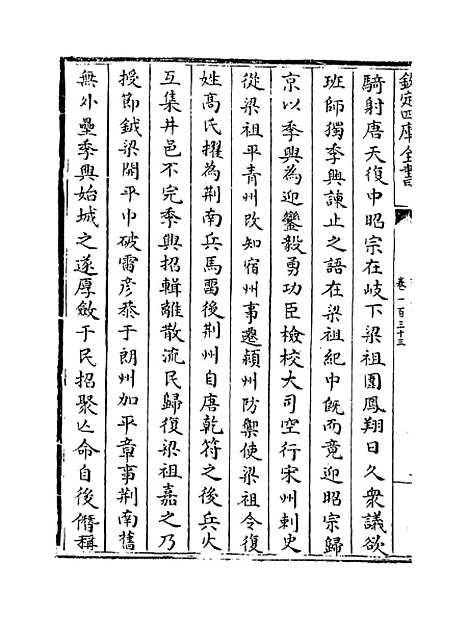 欽定四庫全書
卷一百三十三
騎射唐天復中昭宗在岐下梁祖圍鳳翔日久衆議欲
班師獨季興諫止之語在梁祖紀中旣而竟迎昭宗歸
京以季興為迎鑾毅勇功臣檢校大司空行宋州刺史
從梁祖平青州改知宿州事遷潁州防禦使梁祖令復
姓髙氏擢為荆南兵馬留後荆州自唐乾符之後兵火
互集井邑不完季興招輯離散流民歸復梁祖嘉之乃
授節鉞梁開平中破雷彦恭于朗州加平章事荆南舊
無外壘季興始城之遂厚斂于民招聚亡命自後僭稱